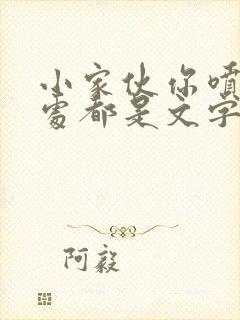 小家伙你喷
处都是文字
阿毅